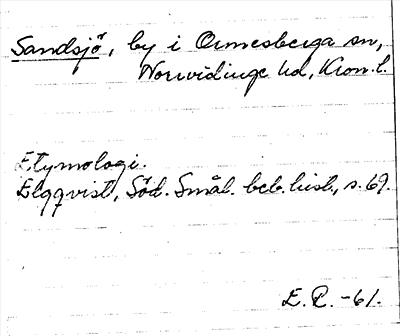 Sandsjö, by i Ormesberga sn,
Norrvidinge hd, Kron.l.
Etymologi.
Elgqvist, Söd. Smål. beb. hist., s. 69.
E.R. -61.